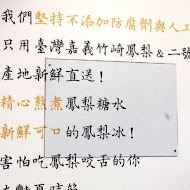 我們堅持不添加防腐劑與人工
只用臺灣嘉義竹崎鳳梨&二號
產地新鮮直送！
精心熬煮鳳梨糖水
新鮮可口的鳳梨冰！
害怕吃鳳梨咬舌的你